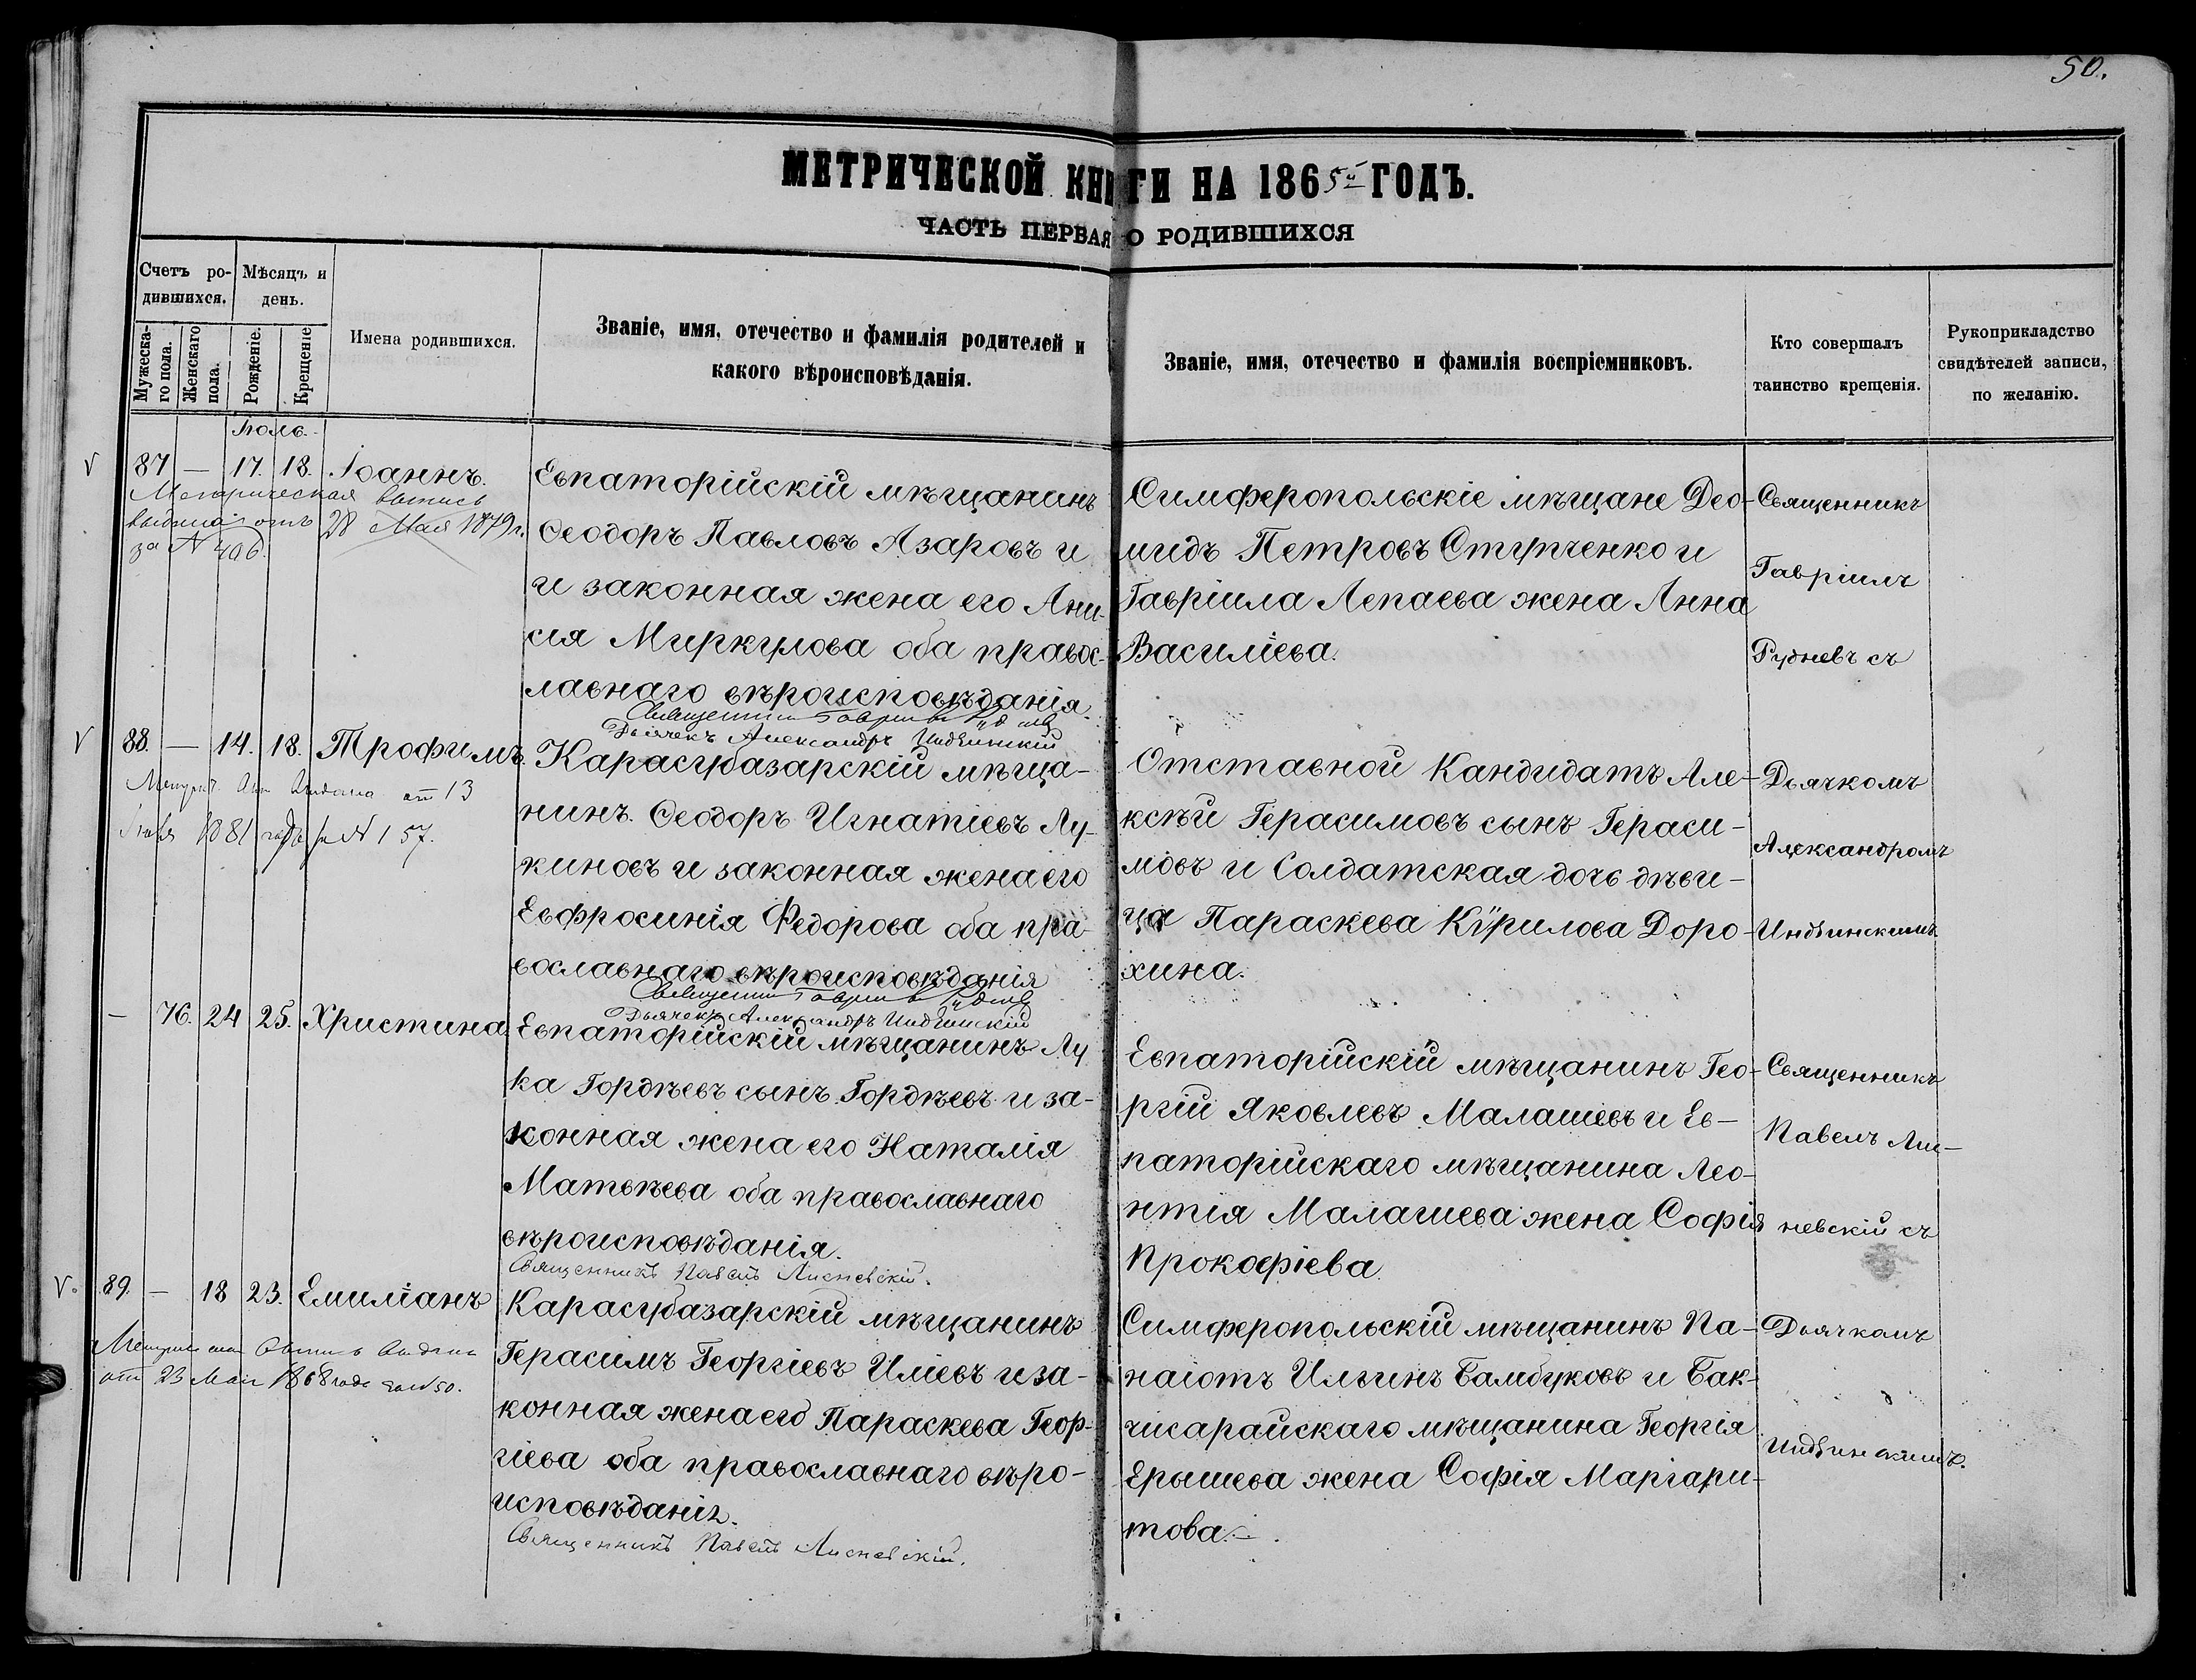 50.
МЕТРИЧЕСКОЙ КНИГИ НА 1865й ГОДЪ.
ЧАСТЬ ПЕРВАЯ О РОДИВШИХСЯ
Счетъ ро-
дившихся.
Мѣсяцъ и
день.
Мужеска-
го пола.
Женскаго
пола.
Рожденіе.
Крещеніе
Имена родившихся.
Званіе, имя, отечество и фамилія родителей и
какого вѣроисповѣданія.
Званіе, имя, отечество и фамилія воспріемниковъ.
Кто совершалъ
таинство крещенія.
Рукоприкладство
свидѣтелей записи,
по желанію.
Іюль.
V 87 — 17. 18. Іоаннъ.
Метрическая выпись
выдана отъ 28 Мая 1879 г.
за N 496.
Евпаторійскій мѣщанинъ
Ѳеодоръ Павловъ Азаровъ и
и законная жена его Ани-
сія Миркулова оба правос-
лавнаго вѣроисповѣданія.
Священникъ Гавріилъ Рудневъ
Дьячекъ Александръ Индѣинскій
Симферопольскіе мѣщане Део-
мидъ Петровъ Ступченко и
Гавріила Лепаева жена Анна
Василіева.
Священникъ
Гавріилъ
Рудневъ съ
V 88. — 14. 18. Трофимъ.
выдана от 13
1881 года за N 157.
Карасубазарскій мѣща-
нинъ Ѳеодоръ Игнатіевъ Лу-
киновъ и законная жена его
Евфросинія Федорова оба пра-
вославнаго вѣроисповѣданія
Священникъ Гавріилъ Рудневъ
Дьячекъ Александръ Индѣинскій
Отставной Кандидатъ Але-
ксѣй Герасимовъ сынъ Гераси-
мовъ и Солдатская дочь дѣви-
ца Параскева Кирилова Доро-
хина.
Дьячкомъ
Александромъ
Индѣинскимъ
— 76. 24 25. Христина
Евпаторійскій мѣщанинъ Лу
ка Гордѣевъ сынъ Гордѣевъ и за-
конная жена его Наталія
Матвѣева оба православнаго
вѣроисповѣданія.
Священникъ Павелъ Лисневскій.
Евпаторійскій мѣщанинъ Гео-
ргій Яковлевъ Малашевъ и Ев-
паторійскаго мѣщанина Лео-
нтія Малашева жена Софія
Прокофіева.
Священникъ
Павелъ Лис-
невскій съ
V. 89. — 18 23. Емиліанъ
выпись выдана
отъ 23 Мая 1868 года за N 50.
Карасубазарскій мѣщанинъ
Герасимъ Георгіевъ Иліевъ и за-
конная жена его Параскева Геор-
гіева оба православнаго вѣро-
исповѣданія.
Священникъ Павелъ Лисневскій.
Симферопольскій мѣщанинъ Па-
наіотъ Ильинъ Бамбуковъ и Бак-
чисарайскаго мѣщанина Георгія
Ерышева жена Софія Маргари-
това.
Дьячкомъ
Индѣинскимъ.